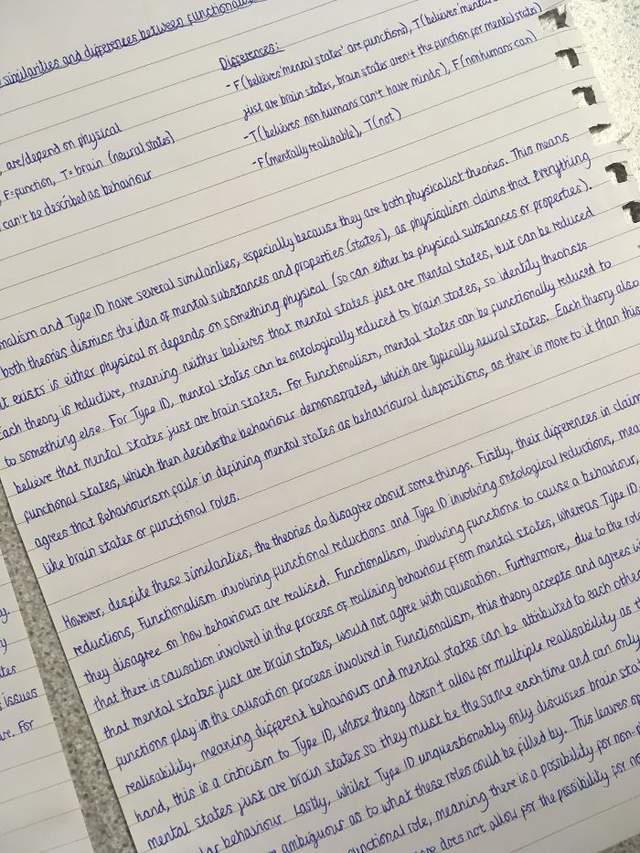 similarities and differences between functionalism
Differences:
-F(believes 'mental states' are functions), T(believes 'mental
just are brain states, brain states aren't the function for mental states)
-T(believes non humans can't have minds), F(nonhumans can)
-F(mentally realisable), T(not)
are/depend on physical
F=function, T=brain (neural states)
can't be described as behaviour
nalism and Type ID have several similarities, especially because they are both physicalist theories. This means
both theories dismiss the idea of mental substances and properties (states), as physicalism claims that everything
t exists is either physical or depends on something physical (so can either be physical substances or properties).
Each theory is reductive, meaning neither believes that mental states just are mental states, but can be reduced
to something else. For Type ID, mental states can be ontologically reduced to brain states, so identity theorists
believe that mental states just are brain states. For Functionalism, mental states can be functionally reduced to
functional states, which then decides the behaviour demonstrated, which are typically neural states. Each theory also
agrees that Behaviourism fails in defining mental states as behavioural dispositions, as there is more to it than this
like brain states or functional roles.
However, despite these similarities, the theories do disagree about some things. Firstly, their differences in claim
reductions, Functionalism involving functional reductions and Type ID involving ontological reductions, mea
they disagree on how behaviours are realised. Functionalism, involving functions to cause a behaviour,
that there is causation involved in the process of realising behaviour from mental states, whereas Type ID,
that mental states just are brain states, would not agree with causation. Furthermore, due to the role
functions play in the causation process involved in Functionalism, this theory accepts and agrees w
realisability, meaning different behaviours and mental states can be attributed to each othe
hand, this is a criticism to Type ID, whose theory doesn't allow for multiple realisability as th
mental states just are brain states so they must be the same each time and can only
lar behaviour. Lastly, whilst Type ID unquestionably only discusses brain sta
ambiguous as to what these roles could be filled by. This leaves o
unctional role, meaning there is a possibility for non-
does not allow for the possibility for no
issues
ve. For